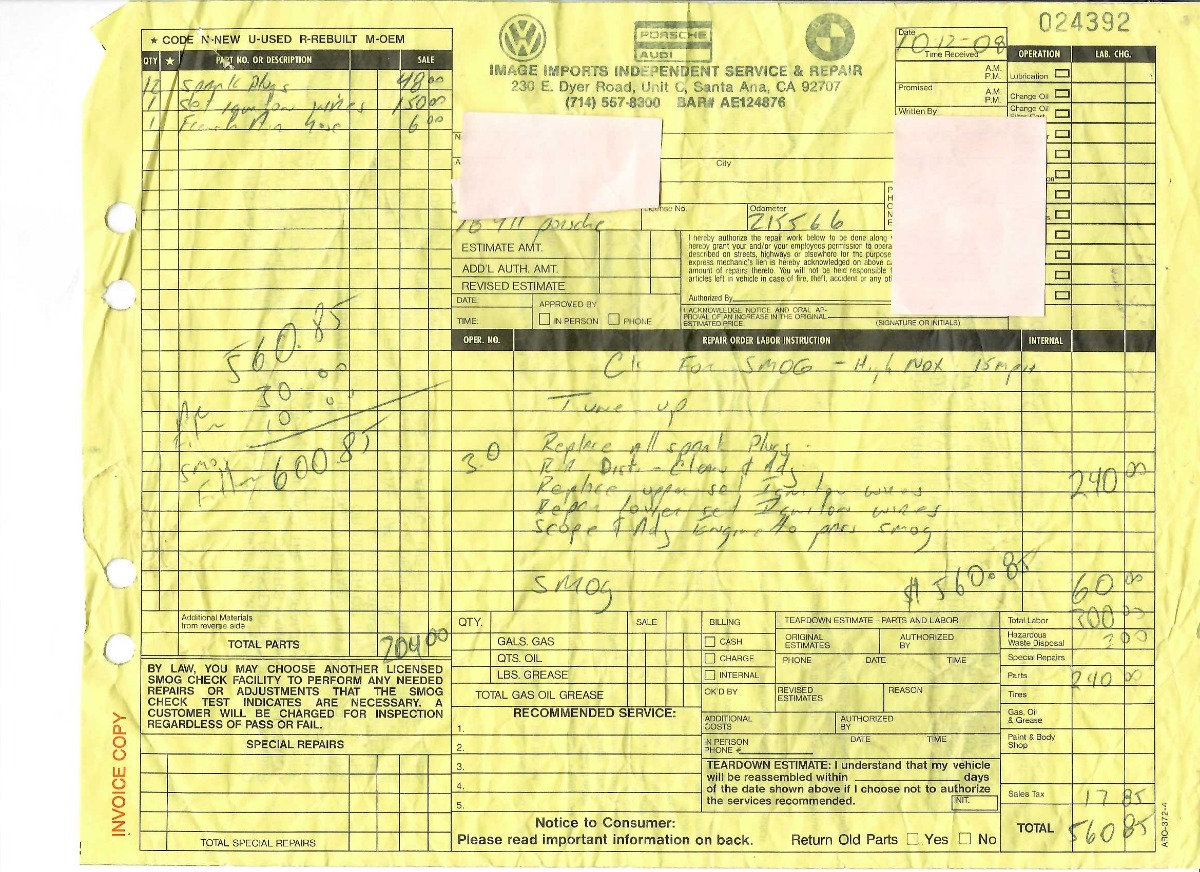 024392
★ CODE N-NEW U-USED R-REBUILT M-OEM
QTY ★ PART NO. OR DESCRIPTION SALE
12 Spark Plugs 48 00
1 Set Ignition wires 150 00
1 Hose 6 00
PORSCHE
AUDI
IMAGE IMPORTS INDEPENDENT SERVICE & REPAIR
230 E. Dyer Road, Unit C, Santa Ana, CA 92707
(714) 557-8300 BAR# AE124876
Date
10-12-08
Time Received
A.M.
P.M.
Promised
A.M.
P.M.
Written By
OPERATION LAB. CHG.
Lubrication
Change Oil
Change Oil
City
License No.
Odometer
215566
911 porsche
ESTIMATE AMT.
ADD'L AUTH. AMT.
REVISED ESTIMATE
DATE:
TIME:
APPROVED BY
IN PERSON PHONE
I hereby authorize the repair work below to be done along
hereby grant your and/or your employees permission to opera
described on streets, highways or elsewhere for the purpose
express mechanic's lien is hereby acknowledged on above
amount of repairs thereto. You will not be held responsible
articles left in vehicle in case of fire, theft, accident or any
Authorized By
I ACKNOWLEDGE NOTICE AND ORAL AP-
PROVAL OF AN INCREASE IN THE ORIGINAL
ESTIMATED PRICE.
(SIGNATURE OR INITIALS)
OPER. NO. REPAIR ORDER LABOR INSTRUCTION INTERNAL
Ck For SMOG - High NOX 15 mph
Tune up
Replace all spark Plugs
3.0 Dist. - Clean & Adj 240 00
Replace upper set Ignition wires
lower set Ignition wires
Scope & Adj Engine to pass smog
SMOG $ 560.85 60 00
560.85
30 00
10 00
smog
600.85
Additional Materials
from reverse side
TOTAL PARTS 204 00
BY LAW, YOU MAY CHOOSE ANOTHER LICENSED
SMOG CHECK FACILITY TO PERFORM ANY NEEDED
REPAIRS OR ADJUSTMENTS THAT THE SMOG
CHECK TEST INDICATES ARE NECESSARY. A
CUSTOMER WILL BE CHARGED FOR INSPECTION
REGARDLESS OF PASS OR FAIL.
SPECIAL REPAIRS
TOTAL SPECIAL REPAIRS
INVOICE COPY
QTY. SALE
GALS. GAS
QTS. OIL
LBS. GREASE
TOTAL GAS OIL GREASE
RECOMMENDED SERVICE:
1.
2.
3.
4.
5.
BILLING
CASH
CHARGE
INTERNAL
TEARDOWN ESTIMATE - PARTS AND LABOR
ORIGINAL
ESTIMATES
AUTHORIZED
BY
PHONE DATE TIME
OK'D BY
REVISED
ESTIMATES
REASON
ADDITIONAL
COSTS
AUTHORIZED
BY
IN PERSON
PHONE #
DATE TIME
TEARDOWN ESTIMATE: I understand that my vehicle
will be reassembled within ________ days
of the date shown above if I choose not to authorize
the services recommended. INIT.
Notice to Consumer:
Please read important information on back.
Return Old Parts Yes No
Total Labor 300 00
Hazardous
Waste Disposal
Special Repairs
Parts 240 00
Tires
Gas, Oil
& Grease
Paint & Body
Shop
Sales Tax 17 85
TOTAL 560 85
ARO-372-4